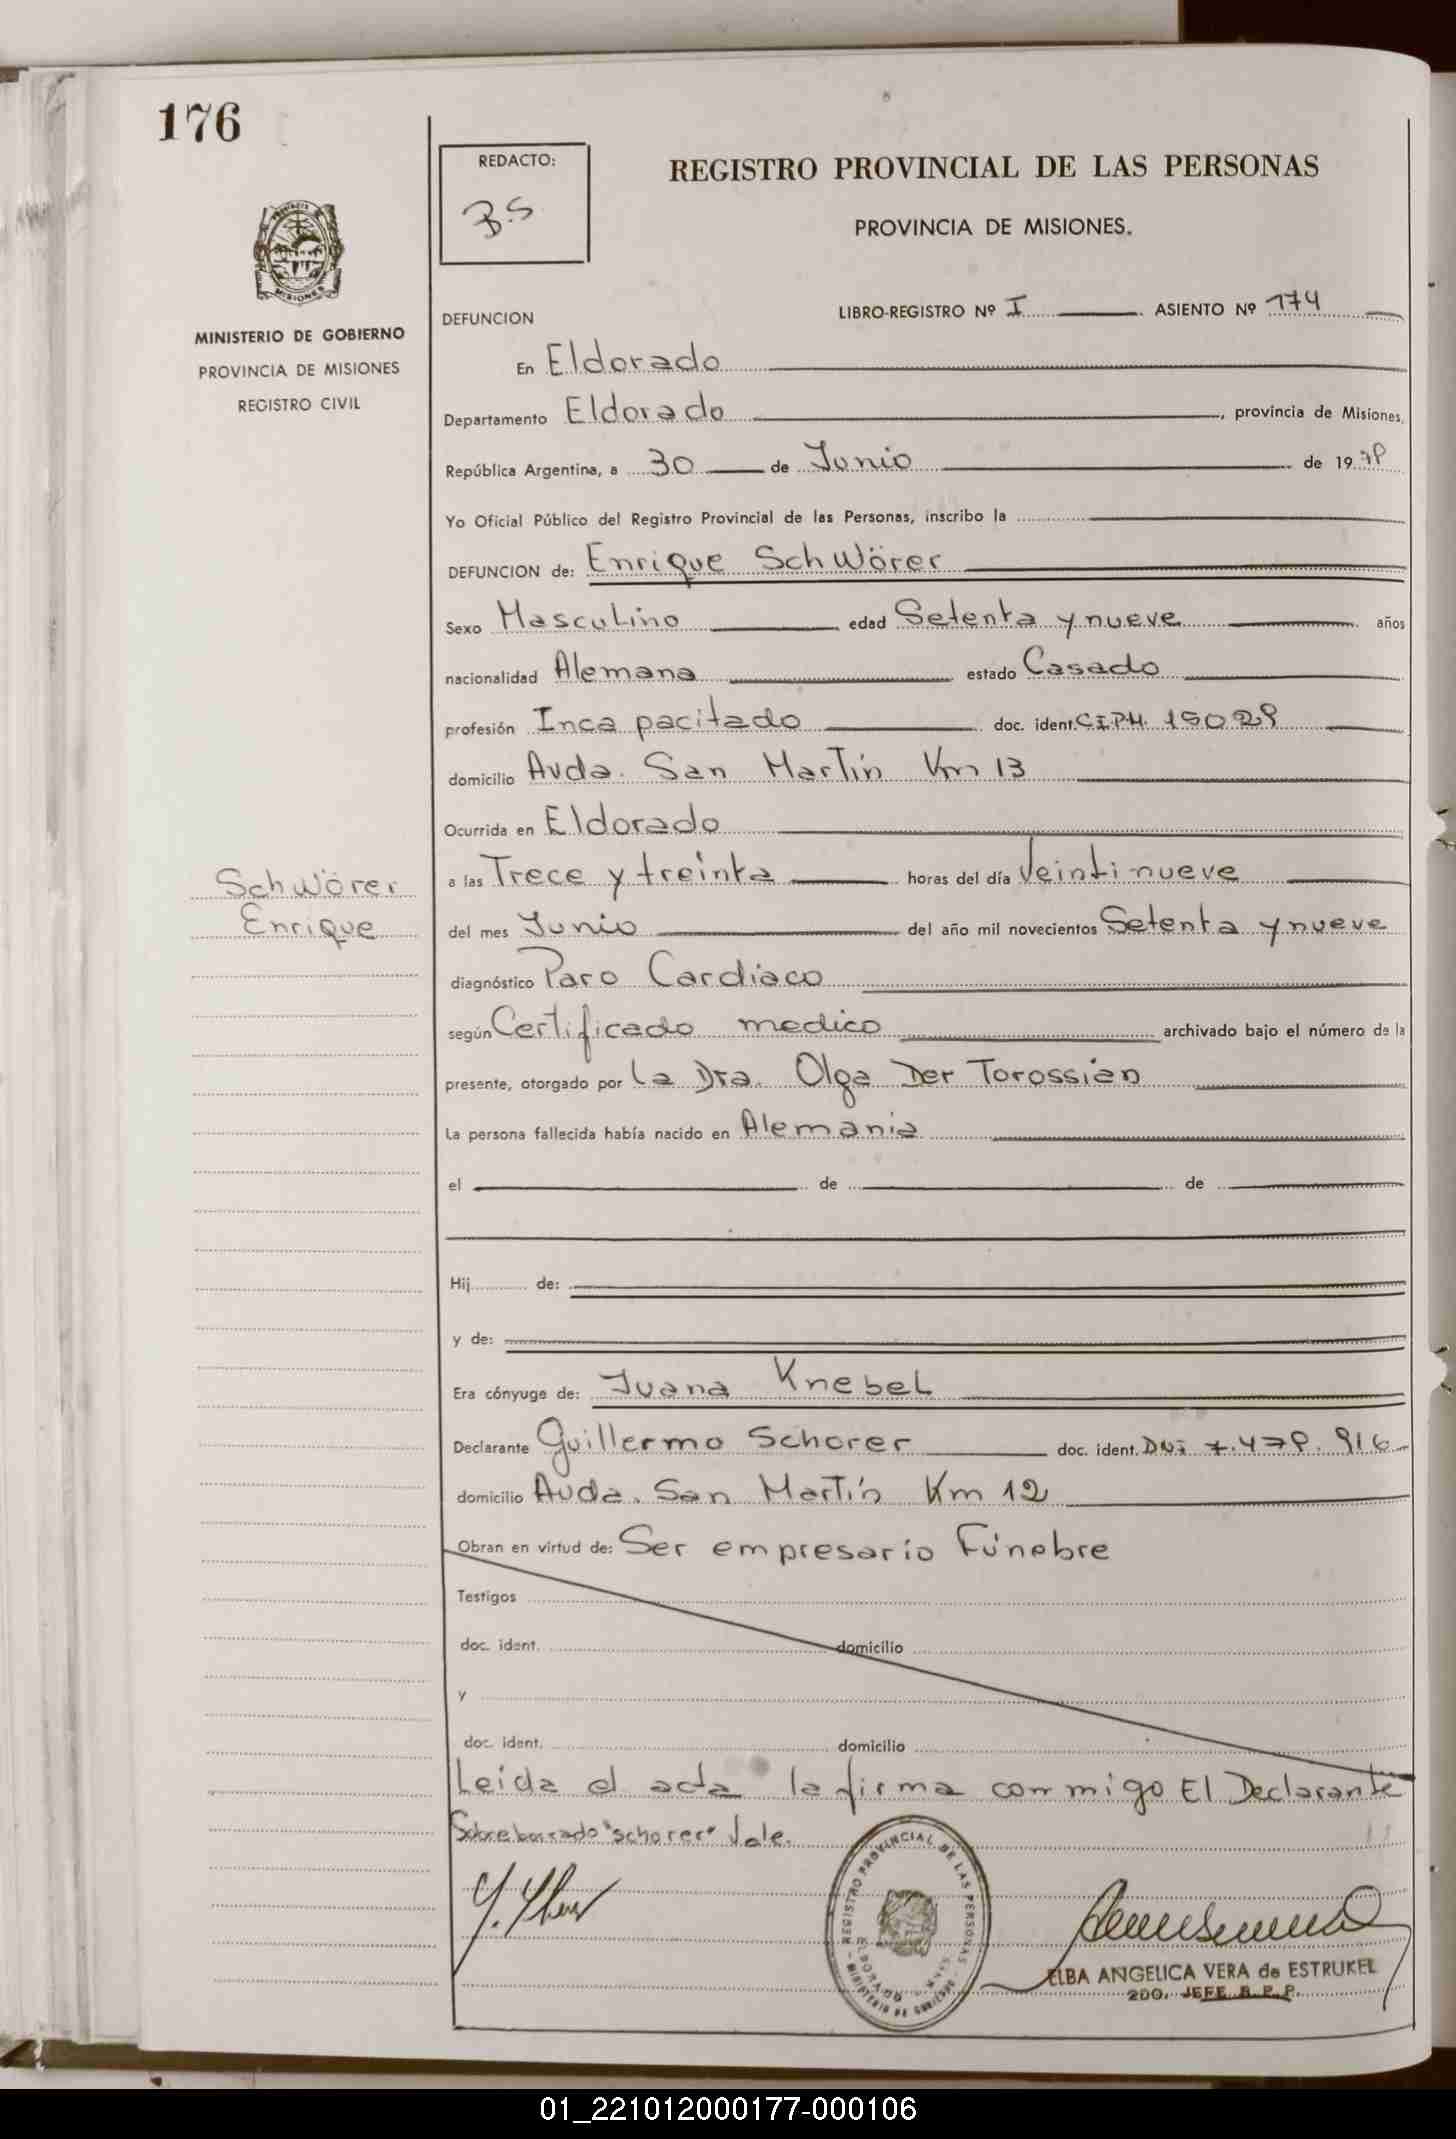 176
REDACTO:
B.S
REGISTRO PROVINCIAL DE LAS PERSONAS
PROVINCIA DE MISIONES.
MISIONES
MINISTERIO DE GOBIERNO
PROVINCIA DE MISIONES
REGISTRO CIVIL
DEFUNCION LIBRO-REGISTRO Nº I ASIENTO Nº 174
En Eldorado
Departamento Eldorado, provincia de Misiones,
República Argentina, a 30 de Junio de 1979
Yo Oficial Público del Registro Provincial de las Personas, inscribo la
DEFUNCION de: Enrique Schwörer
Sexo Masculino edad Setenta y nueve años
nacionalidad Alemana estado Casado
profesión Incapacitado doc. ident. C.I.P.M. 15029
domicilio Avda. San Martín Km 13
Ocurrida en Eldorado
Schwörer
Enrique
a las Trece y treinta horas del día Veintinueve
del mes Junio del año mil novecientos Setenta y nueve
diagnóstico Paro Cardiaco
según Certificado medico archivado bajo el número de la
presente, otorgado por La Dra. Olga Der Torossian
La persona fallecida había nacido en Alemania
el de de
Hij de:
y de:
Era cónyuge de: Juana Knebel
Declarante Guillermo Schorer doc. ident. DNi 7.479.916
domicilio Avda. San Martín Km 12
Obran en virtud de: Ser empresario Fúnebre
Testigos
doc. ident. domicilio
y
doc. ident. domicilio
Leida el acta la firma conmigo El Declarante
Sobreborrado "schorer" Vale.
REGISTRO PROVINCIAL DE LAS PERSONAS
ELDORADO
MINISTERIO DE GOBIERNO
ELBA ANGELICA VERA de ESTRUKEL
2DO. JEFE R. P. P.
01_221012000177-000106